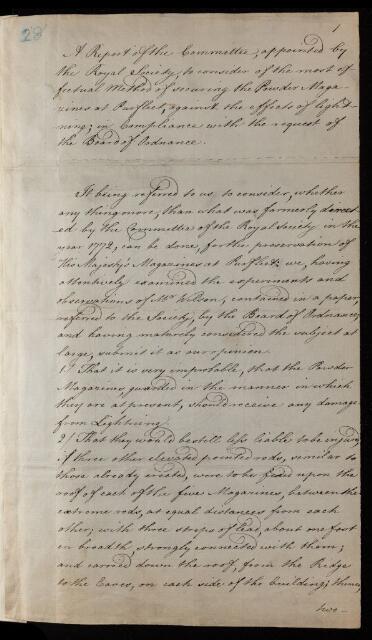 28
1
A Report of the Committee, appointed by
the Royal Society, to consider of the most ef-
fectual Method of securing the Powder Maga-
zines at Purfleet, against the effects of light-
ning; in Compliance with the request of
the Board of Ordnance.
It being referred to us, to consider, whether
any thing more, than what was formerly direct-
ed by the Committee of the Royal Society in the
year 1772, can be done, for the preservation of
His Majesty's Magazines at Purfleet: we, having
attentively examined the experiments and
observations of Mr. Wilson, contained in a paper,
referred to the Society, by the Board of Ordnance,
and having maturely considered the subject at
large, submit it as our opinion.
1/ That it is very improbable, that the Powder
Magazines, guarded in the manner in which
they are at present, should receive any damage
from Lightning.
2/ That they would be still less liable to be injured
if three other elevated pointed rods, similar to
those already erected, were to be fixed upon the
roof of each of the five Magazines, between the
extreme rods, at equal distances from each
other; with three strops of lead, about one foot
in breadth, strongly connected with them;
and carried down the roof, from the Ridge
to the Eaves, on each side of the building; thence,
two-